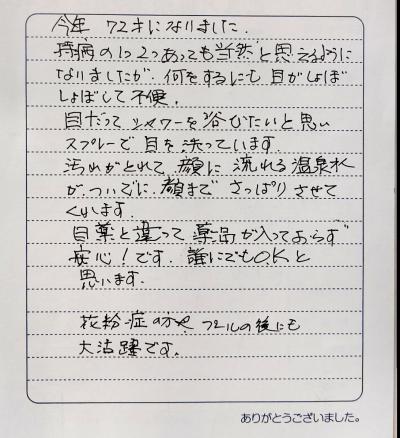 今年 72才になりました.
持病の1つ2つあっても当然と思えるように
なりましたが 何をするにも 目がしょぼ
しょぼして不便.
目だって シャワーを浴びたいと思い
スプレーで 目を洗っています.
汚れがとれて 顔に 流れる温泉水
が、ついでに 顔まで さっぱり させて
くれます.
目薬と違って 薬品が入っておらず
安心!です. 誰にでもOKと
思います.
花粉症の方や プールの後にも
大活躍です.
ありがとうございました。